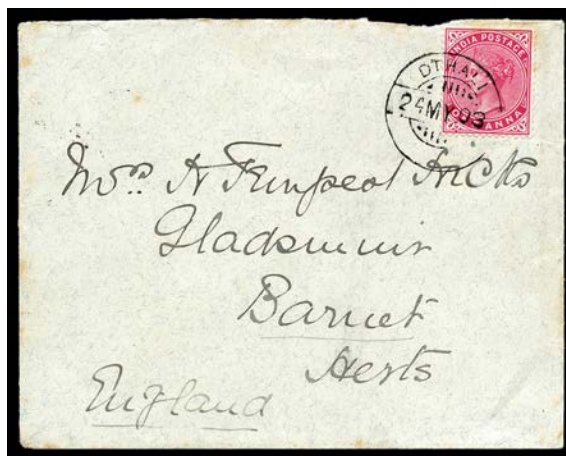 INDIA POSTAGE
ONE ANNA
OTHALI
24 MY 03
Mrs A Tempest Hicks
Gladsmuir
Barnet
Herts
England